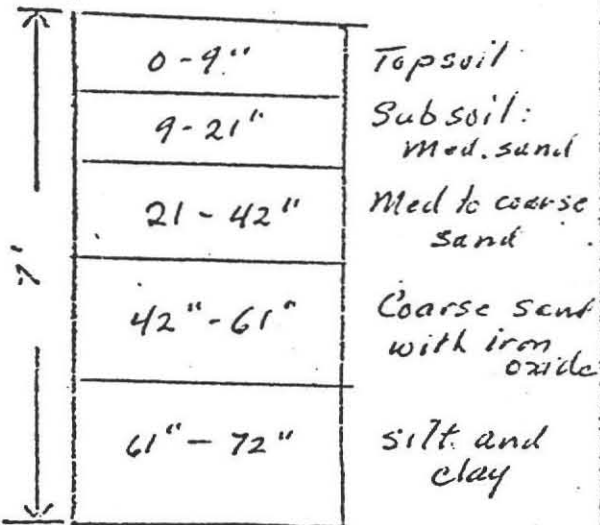 7'
0-9" Topsoil
9-21" Subsoil:
Med. sand
21-42" Med to coarse
sand
42"-61" Coarse sand
with iron
oxide
61"-72" silt and
clay